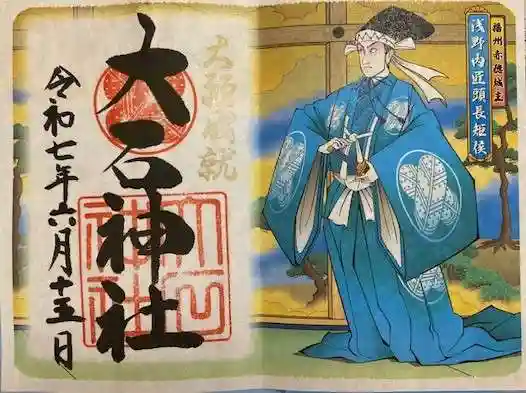 播州赤穂城主
浅野内匠頭長矩侯
大願成就
大石神社
令和七年六月十五日